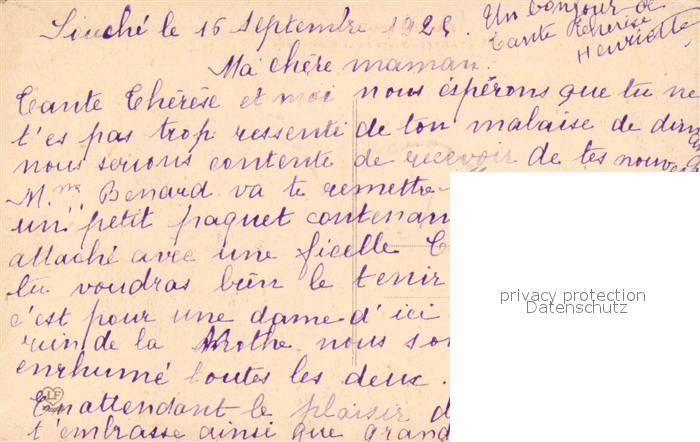 Souché le 16 Septembre 1925.
Un bonjour de
tante Thérèse
Henriette
Ma chere maman.
Tante Thérèse et moi nous éspérons que tu ne
t'es pas trop ressenti de ton malaise de dim
nous serions contente de recevoir de tes nouve
M.me Benard va te remettre
un petit paquet contenan
attaché avec une ficelle
tu voudras bien le tenir
c'est pour une dame d'ici
de la Mothe nous so
enrhumé toutes les deux.
En attendant le plaisir d
t'embrasse ainsi que grand
LF
privacy protection
Datenschutz